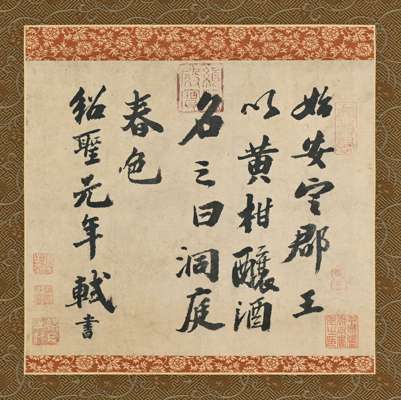 始安定郡王
以黄柑釀酒
名之曰洞庭
春色
紹聖元年軾書